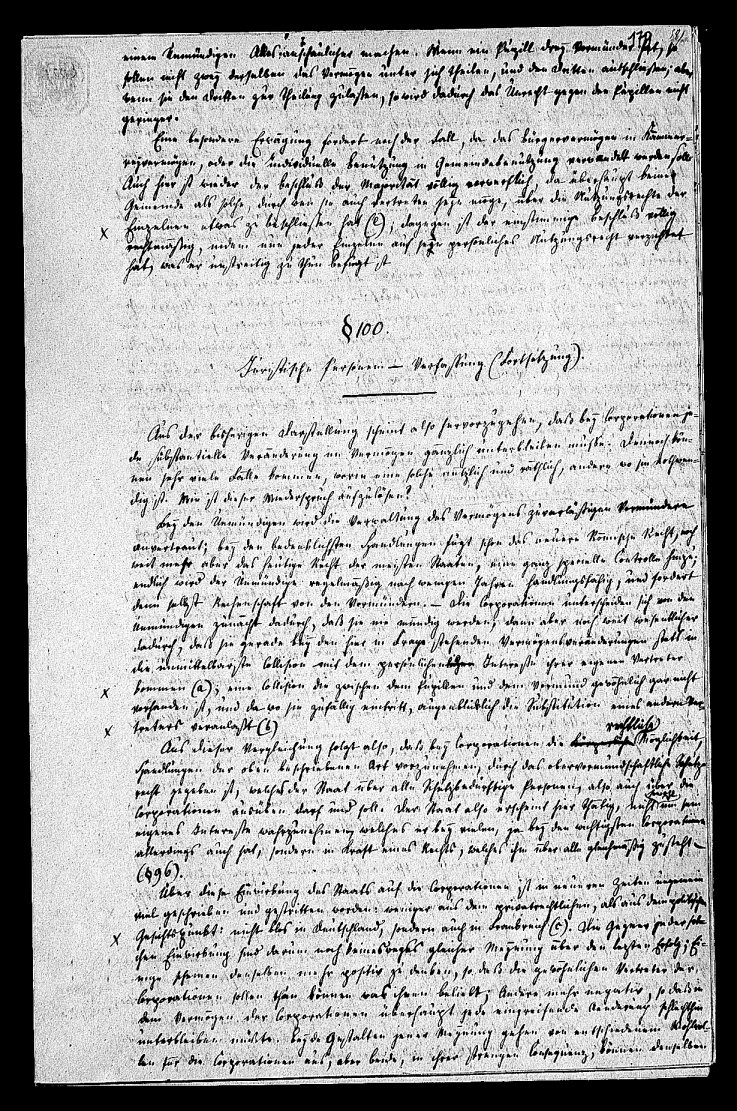 178
einem Unmündigen Alles anschaulicher machen. Wenn ein Pupill drey Vormünder hat, so
sollen nicht zwey derselben das Vermögen unter sich theilen, und den Dritten ausschließen; aber
wenn sie den Dritten zur Theilung zulassen, so wird dadurch das Unrecht gegen den Pupillen nicht
geringer.
Eine besondere Erwägung fordert noch der Fall, da das Bürgervermögen in Kämmerey-
vermögen, oder die individuelle Benutzung in Gemeindebenutzung verwandelt werden soll.
Auch hier ist wieder der Beschluß der Majorität völlig verwerflich, da überhaupt keine
Gemeinde als solche, durch wen sie auch vertreten seyn möge, über die Nutzungsrechte der
Einzelnen etwas zu beschließen hat (e); dagegen ist der einstimmige Beschluß völlig
rechtmäßig, indem nun jeder Einzelne auf sein persönliches Nutzungsrecht verzichtet
hat, was er unstreitig zu thun befugt ist
§ 100.
Juristische Personen — Verfassung (Fortsetzung).
Aus der bisherigen Darstellung scheint also hervorzugehen, daß bey Corporationen je-
de substantielle Veränderung im Vermögen gänzlich unterbleiben müßte. Dennoch kön-
nen sehr viele Fälle kommen, worin eine solche nützlich und räthlich, andere wo sie nothwen-
dig ist. Wie ist dieser Widerspruch aufzulösen?
Bey den Unmündigen wird die Verwaltung des Vermögens zuverlässigen Vormündern
anvertraut; bey den bedenklichsten Handlungen fügt schon das neuere Römische Recht, noch
weit mehr aber das heutige Recht der meisten Staaten, eine ganz specielle Controlle hinzu;
endlich wird der Unmündige regelmäßig nach wenigen Jahren handlungsfähig, und fordert
dann selbst Rechenschaft von den Vormündern. — Die Corporationen unterscheiden sich von den
Unmündigen zunächst dadurch, daß sie nie mündig werden; dann aber noch weit wesentlicher
dadurch, daß sie gerade bey den hier in Frage stehenden Vermögensveränderungen stets in
die unmittelbarste Collision mit dem persönlichen Interesse ihrer eigenen Vertreter
kommen (a); eine Collision die zwischen dem Pupillen und dem Vormund gewöhnlich gar nicht
vorhanden ist, und da wo sie zufällig eintritt, augenblicklich die Substitution eines andern Ver-
treters veranlaßt (b)
rechtliche
Aus dieser Vergleichung folgt also, daß bey Corporationen die Möglichkeit,
Handlungen der oben beschriebenen Art vorzunehmen, durch das obervormundschaftliche Schutz-
recht gegeben ist, welches der Staat über alle Schutzbedürftige Personen, also auch über die
Corporationen ausüben darf und soll. Der Staat also erscheint hier thätig, nicht um sein
eigenes Interesse wahrzunehmen, welches er bey vielen, ja bey den wichtigsten Corporationen
allerdings auch hat, sondern in Kraft eines Rechts, welches ihm über alle gleichmäßig zusteht
(§ 96).
Über diese Einwirkung des Staats auf die Corporationen ist in neueren Zeiten ungemein
viel geschrieben und gestritten worden: weniger aus dem privatrechtlichen, als aus dem politischen
Gesichtspunkt: nicht blos in Deutschland, sondern auch in Frankreich (c). Die Gegner jeder sol-
chen Einwirkung sind darum noch keinesweges gleicher Meynung über den letzten Erfolg; Ei-
nige scheinen denselben mehr positiv zu denken, so daß die gewöhnlichen Vertreter der
Corporationen sollen thun können was ihnen beliebt; Andere mehr negativ, so daß in
dem Vermögen der Corporationen überhaupt jede eingreifende Aenderung schlechthin
unterbleiben müßte. Beyde Gestalten jener Meynung gehen von entschiedenem Wohlwol-
len für die Corporationen aus, aber beide, in ihrer strengen Consequenz, können denselben